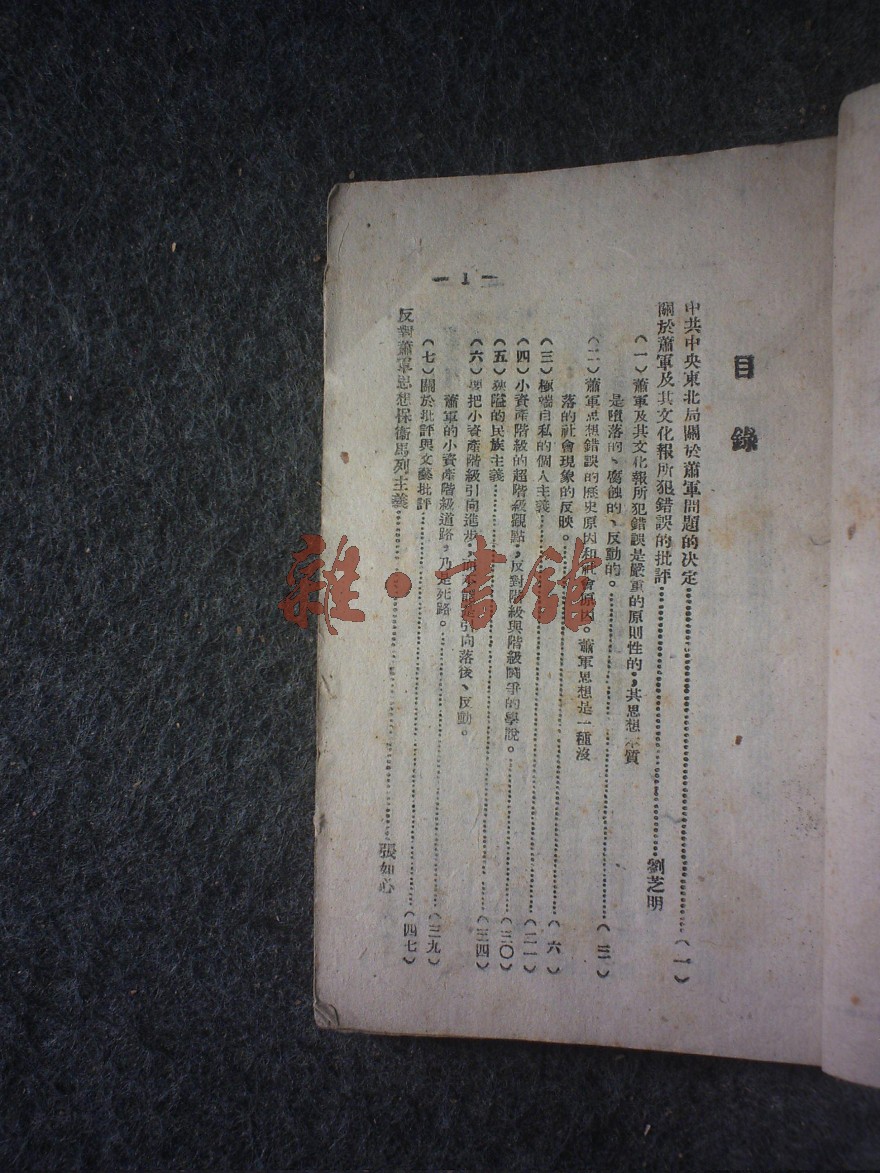 目錄
中共中央東北局關於蕭軍問題的決定……(一)
關於蕭軍及其文化報所犯錯誤的批評……劉芝明
(一)蕭軍及其文化報所犯錯誤是嚴重的原則性的,其思想本質
是墮落的、腐蝕的、反動的。……(三)
(二)蕭軍思想錯誤的歷史原因和社會原因。蕭軍思想是一種沒
落的社會現象的反映。……(六)
(三)極端自私的個人主義……(二一)
(四)小資產階級的超階級觀點,反對階級與階級鬥爭的學說。……(三〇)
(五)狹隘的民族主義……(三四)
(六)要把小資產階級引向進步,而不能引向落後、反動。
蕭軍的小資產階級道路,乃是死路。……(三九)
(七)關於批評與文藝批評……(四七)
反對蕭軍思想保衛馬列主義……張如心
— 1 —
雜·書館